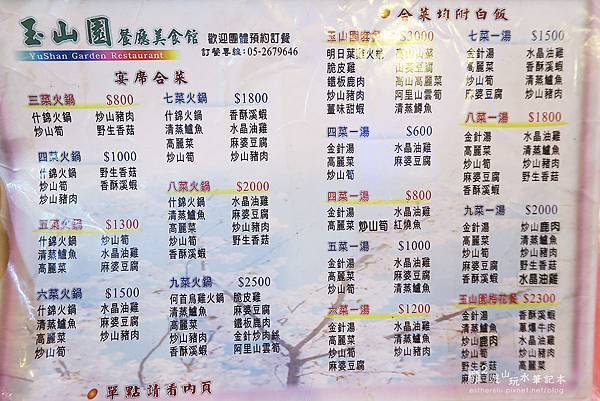 玉山園 餐廳美食館
YuShan Garden Restaurant
歡迎團體預約訂餐
訂餐專線:05-2679646
宴席合菜
三菜火鍋 $800
什錦火鍋 炒山豬肉
炒山筍 野生香菇
四菜火鍋 $1000
什錦火鍋 野生香菇
炒山筍 香酥溪蝦
炒山豬肉
五菜火鍋 $1300
什錦火鍋 炒山筍
清蒸鱸魚 水晶油雞
高麗菜 麻婆豆腐
六菜火鍋 $1500
什錦火鍋 水晶油雞
清蒸鱸魚 麻婆豆腐
高麗菜 炒山豬肉
炒山筍
七菜火鍋 $1800
什錦火鍋 香酥溪蝦
清蒸鱸魚 水晶油雞
高麗菜 麻婆豆腐
炒山筍 炒山豬肉
八菜火鍋 $2000
什錦火鍋 水晶油雞
清蒸鱸魚 麻婆豆腐
高麗菜 炒山豬肉
炒山筍 野生香菇
香酥溪蝦
九菜火鍋 $2500
何首烏雞火鍋 脆皮雞
清蒸鱸魚 麻婆豆腐
高麗菜 鐵板鹿肉
炒山豬肉 金針炒肉絲
香酥溪蝦 阿里山雲筍
單點請看內頁
合菜均附白飯
$3000
脆皮雞 山葵豆腐
鐵板鹿肉 高山高麗菜
炒山豬肉 阿里山雲筍
薑味甜蝦 清蒸鱒魚
四菜一湯 $600
金針湯 水晶油雞
高麗菜 麻婆豆腐
炒山筍
四菜一湯 $800
金針湯 水晶油雞
高麗菜 炒山筍 紅燒魚
五菜一湯 $1000
金針湯 水晶油雞
清蒸鱸魚 麻婆豆腐
高麗菜
炒山筍
六菜一湯 $1200
金針湯 水晶油雞
清蒸鱸魚 麻婆豆腐
高麗菜 炒山豬肉
炒山筍
七菜一湯 $1500
金針湯 水晶油雞
清蒸鱸魚 香酥溪蝦
高麗菜 炒山豬肉
炒山筍 麻婆豆腐
八菜一湯 $1800
金針湯 水晶油雞
清蒸鱸魚 炒山豬肉
高麗菜 野生香菇
炒山筍 麻婆豆腐
香酥溪蝦
九菜一湯 $2000
金針湯 炒山鹿肉
清蒸鱸魚 炒山筍
高麗菜 炒山豬肉
麻婆豆腐 野生香菇
香酥溪蝦 水晶油雞
玉山園梅花餐 $2300
金針湯 香酥溪蝦
清蒸鱸魚 蔥爆牛肉
炒山鹿肉 水晶油雞
高麗菜 炒山豬肉
炒山筍
麻婆豆腐
玩水筆記本
estherelu.pixnet.net/blog